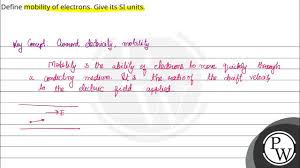 Define mobility of electrons. Give its SI units.
Key Concept: Current electricity, mobility
Mobility is the ability of electrons to move quickly through
a conducting medium. It is the ratio of the drift velocity
to the electric field applied
→E
P
W